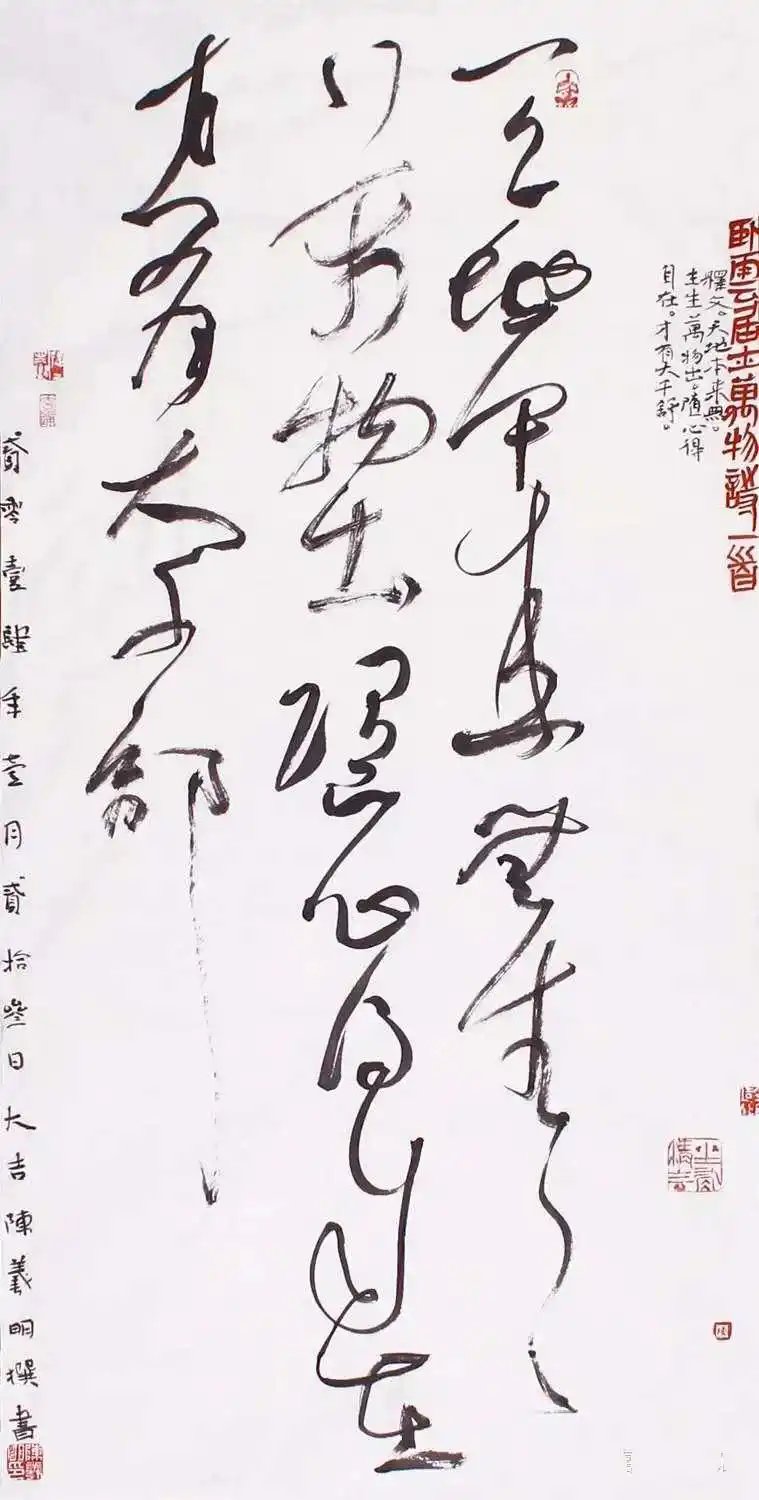 卧雨云居士萬物詩一首
釋文。天地本來無。
生生萬物出。隨心得
自在。才有大千舒。
天地本來無生生
萬物出隨心得自在
才有大千舒
貳零壹肆年壹月貳拾叁日大吉陳義明撰書